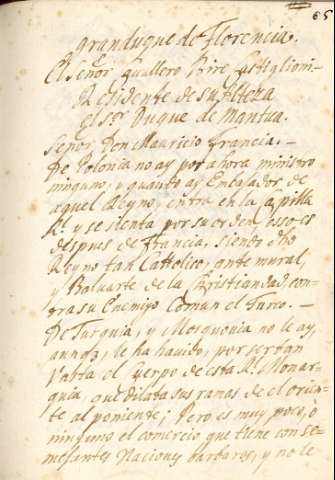 65
gran duque de Florencia.
El Señor, quallero Vire Castiglioni
Residente de su Alteza
el ser Duque de Mantua.
Señor Don Mauricio Francia.
De Polonia no ay por ahora ministro
ninguno; y quanto ay Embaxador de
aquel Reyno, entra en la capilla
Rl y se sienta por su orden, esso es
despues de Francia, siendo dho
Reyno tan Cattolico, ante mural,
y Baluarte de la Christiandad con-
tra su Enemigo Comun el Turco.
De Turquia, y Mosquovia no le ay,
aunq3, le ha havido, por ser tan
Vasta el cuerpo de esta Rl Monar-
quia, que dilata sus ramas de el orien-
te al poniente; Pero es muy poco, ò
ninguno el comercio que tiene con se-
mejantes Naciones barbares, y no le